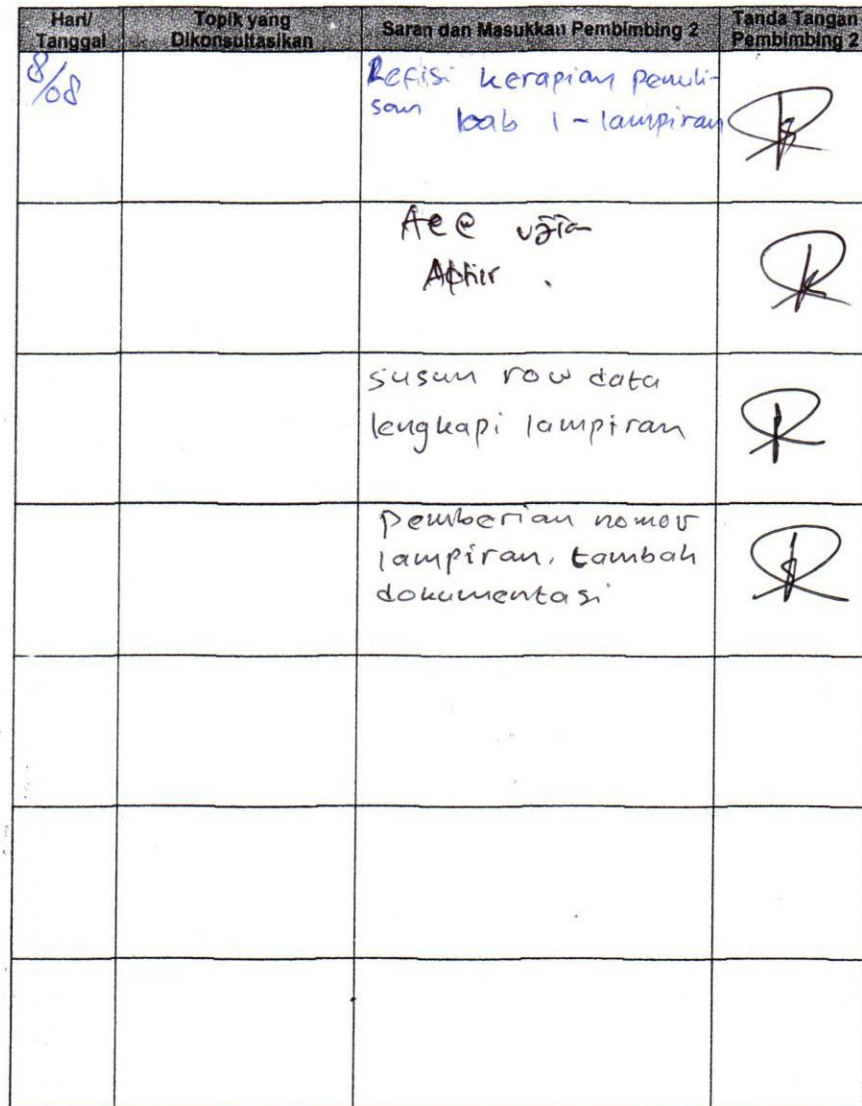 Hari/ Tanggal
Topik yang Dikonsultasikan
Saran dan Masukkan Pembimbing 2
Tanda Tangan Pembimbing 2
8/08
Refisi kerapian penuli-
san bab 1 - lampiran
Acc ujian
Akhir .
susun row data
lengkapi lampiran
pemberian nomor
lampiran, tambah
dokumentasi